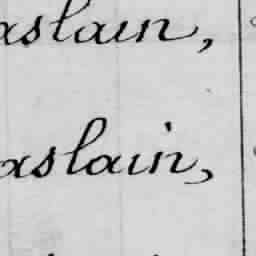 aslain,
aslain,